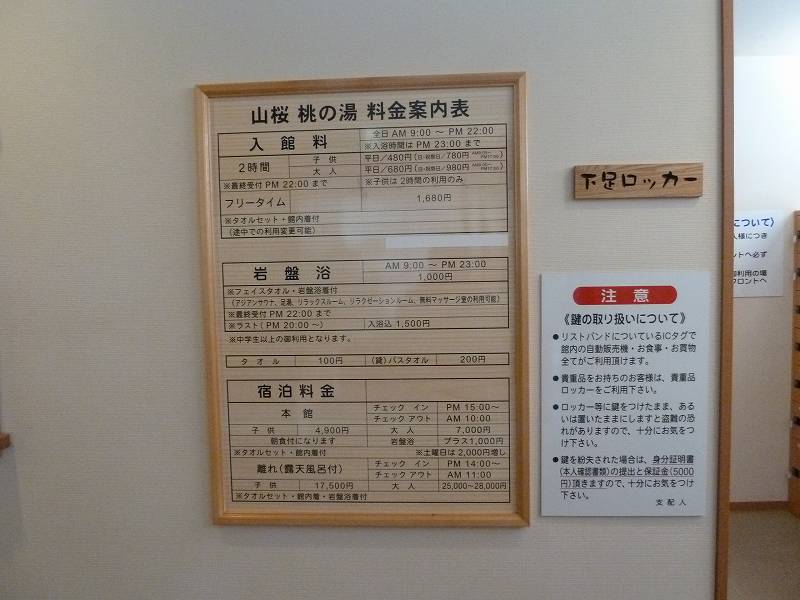 山桜 桃の湯 料金案内表
入館料
全日 AM 9:00 ～ PM 22:00
※入浴時間は PM 23:00 まで
2時間
子供
平日／480円(日・祝祭日／780円
大人
平日／680円(日・祝祭日／980円
※最終受付 PM 22:00 まで
※子供は2時間の利用のみ
フリータイム
1,680円
※タオルセット・館内着付
(途中での利用変更可能)
岩盤浴
AM 9:00 ～ PM 23:00
1,000円
※フェイスタオル・岩盤浴着付
(アジアンサウナ、足湯、リラックスルーム、リラクゼーションルーム、無料マッサージ室の利用可能)
※最終受付 PM 22:00 まで
※ラスト( PM 20:00 ～)
入浴込 1,500円
※中学生以上の御利用となります。
タオル 100円 (貸)バスタオル 200円
宿泊料金
本館
チェック イン PM 15:00～
チェック アウト AM 10:00
子供 4,900円 大人 7,000円
朝食付になります 岩盤浴 プラス1,000円
※タオルセット・館内着付 ※土曜日は2,000円増し
離れ(露天風呂付)
チェック イン PM 14:00～
チェック アウト AM 11:00
子供 17,500円 大人 25,000～28,000円
※タオルセット・館内着・岩盤浴着付
下足ロッカー
注意
《鍵の取り扱いについて》
●リストバンドについているICタグで
館内の自動販売機・お食事・お買物
全てがご利用頂けます。
●貴重品をお持ちのお客様は、貴重品
ロッカーをご利用下さい。
●ロッカー等に鍵をつけたまま、ある
いは置いたままにしますと盗難の恐
れがありますので、十分にお気をつ
け下さい。
●鍵を紛失された場合は、身分証明書
(本人確認書類)の提出と保証金(5000
円)頂きますので、十分にお気をつけ
下さい。
支配人
について》
人様につき
ントへ必ず
御利用の場
フロントへ